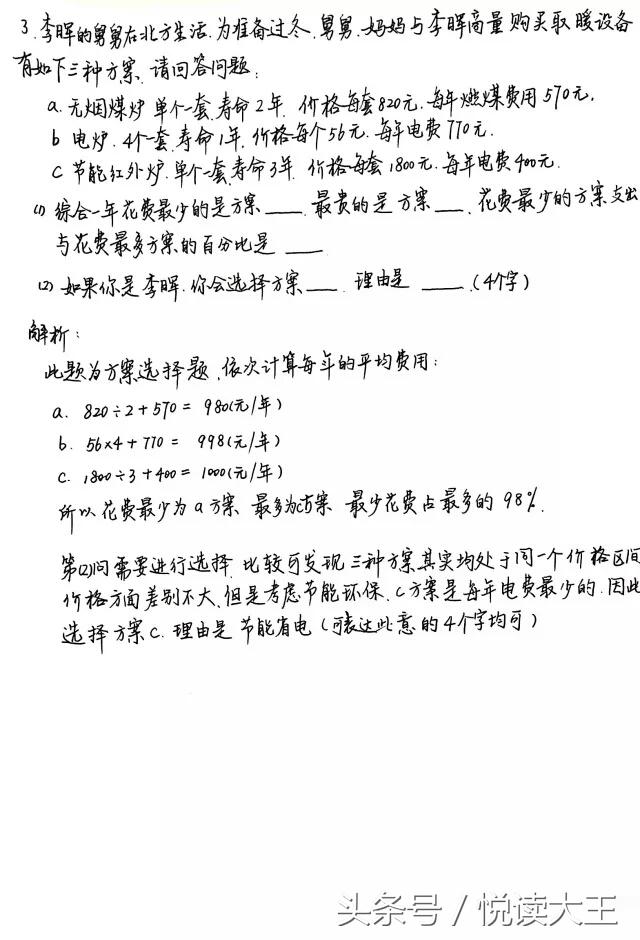 3.李晖的舅舅在北方生活.为准备过冬.舅舅.妈妈与李晖商量购买取暖设备
有如下三种方案.请回答问题:
a.无烟煤炉 单个一套.寿命2年.价格每套820元.每年燃煤费用570元.
b 电炉.4个一套.寿命1年.价格每个56元.每年电费770元.
C 节能红外炉.单个一套寿命3年.价格每套1800元.每年电费400元.
(1) 综合一年花费最少的是方案____ 最贵的是方案____.花费最少的方案支出
与花费最多方案的百分比是 ____
(2) 如果你是李晖.你会选择方案____.理由是 ____.(4个字)
解析:
此题为方案选择题.依次计算每年的平均费用:
a. 820÷2+570= 980(元/年)
b. 56×4+770= 998(元/年)
c. 1800÷3+400=1000(元/年)
所以花费最少为a方案.最多为c方案.最少花费占最多的98%.
第(2)问需要进行选择.比较可发现三种方案其实均处于同一个价格区间
价格方面差别不大.但是考虑节能环保.C方案是每年电费最少的.因此
选择方案C.理由是节能省电(可表达此意的4个字均可)
头条号/悦读大王